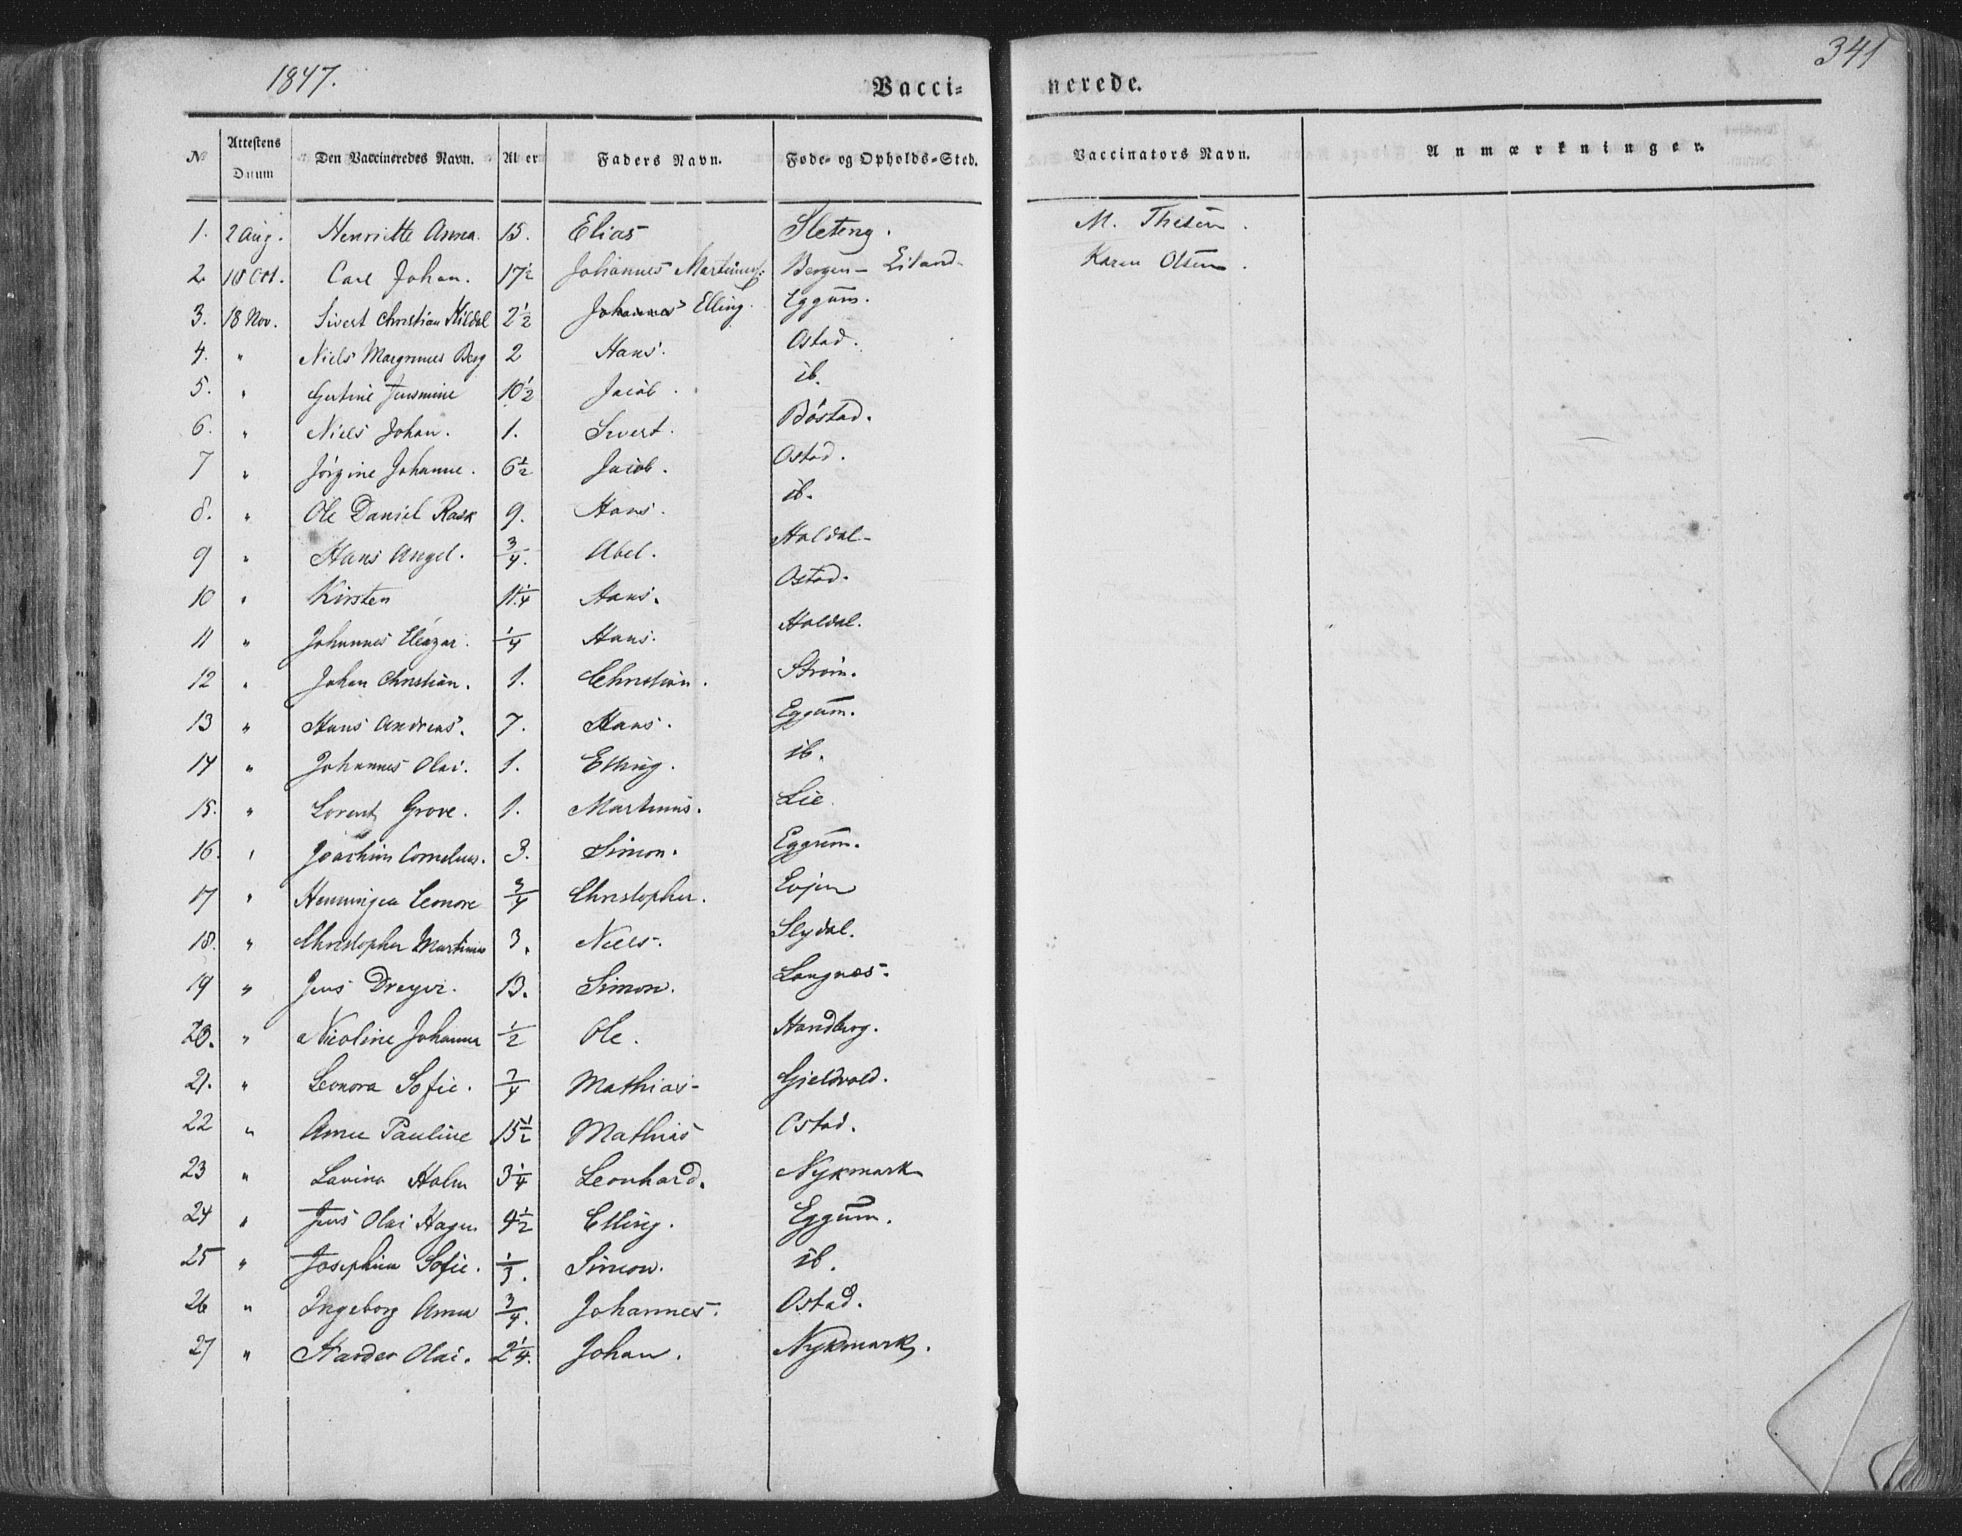 1847. Vacci= nerede. 341
№ Attestens Datum Den Vaccineredes Navn. Alder Faders Navn. Føde- og Opholds-Sted. Vaccinators Navn. Anmærkninger.
1. 2 Aug. Henriette Anna. 15. Elias Sleteng. M. Thesen.
2. 18 Oct. Carl Johan. 17½ Johannes Bergen - Eiland. Karen Olsen.
3. 18 Nov. Sivert Christian Hildal 2½ Johannes Elling. Eggum.
4. " Niels Berg 2 Hans. Ostad.
5. " Gertine Jensmine 10½ Jacob. ib.
6. " Niels Johan. 1. Sivert. Böstad.
7 " Jörgine Johanne. 6½ Jacob. Ostad.
8. " Ole Daniel Rask 9. Hans. ib.
9 " Hans Angel. ¾. Abel. Haldal
10 " Kirsten 11¼ Hans. Ostad.
11 " Johannes Eleazar. ¼ Hans. Haldal.
12 " Johan Christian. 1. Christian. Ström.
13 " Hans Andreas. 7. Hans. Eggum.
14 " Johannes Olai. 1. Elling. ib.
15. " Lorents Grove. 1. Martinus. Lie
16. " Joachim Cornelius. 3. Simon. Eggum.
17 " Henningea Leonore ¾ Christopher. Evjen
18. " Christopher Martinus 3. Niels. Slydal.
19 " Jens Dreyer. 13. Simon. Langnæs.
20. " Nicoline Johanna ½ Ole. Handberg.
21. " Leonora Sofie. ¾ Mathias Gieldvold.
22 " Anne Pauline 15½ Mathias Ostad.
23 " Lavina Holm 3¼ Leonhard. Nykmark
24 " Jens Olai Hagen 4½ Elling. Eggum.
25 " Josephina Sofie. ⅓. Simon. ib.
26 " Ingeborg Anna ¾. Johannes. Ostad.
27 " Harder Olai. 2¼. Johan. Nykmark.